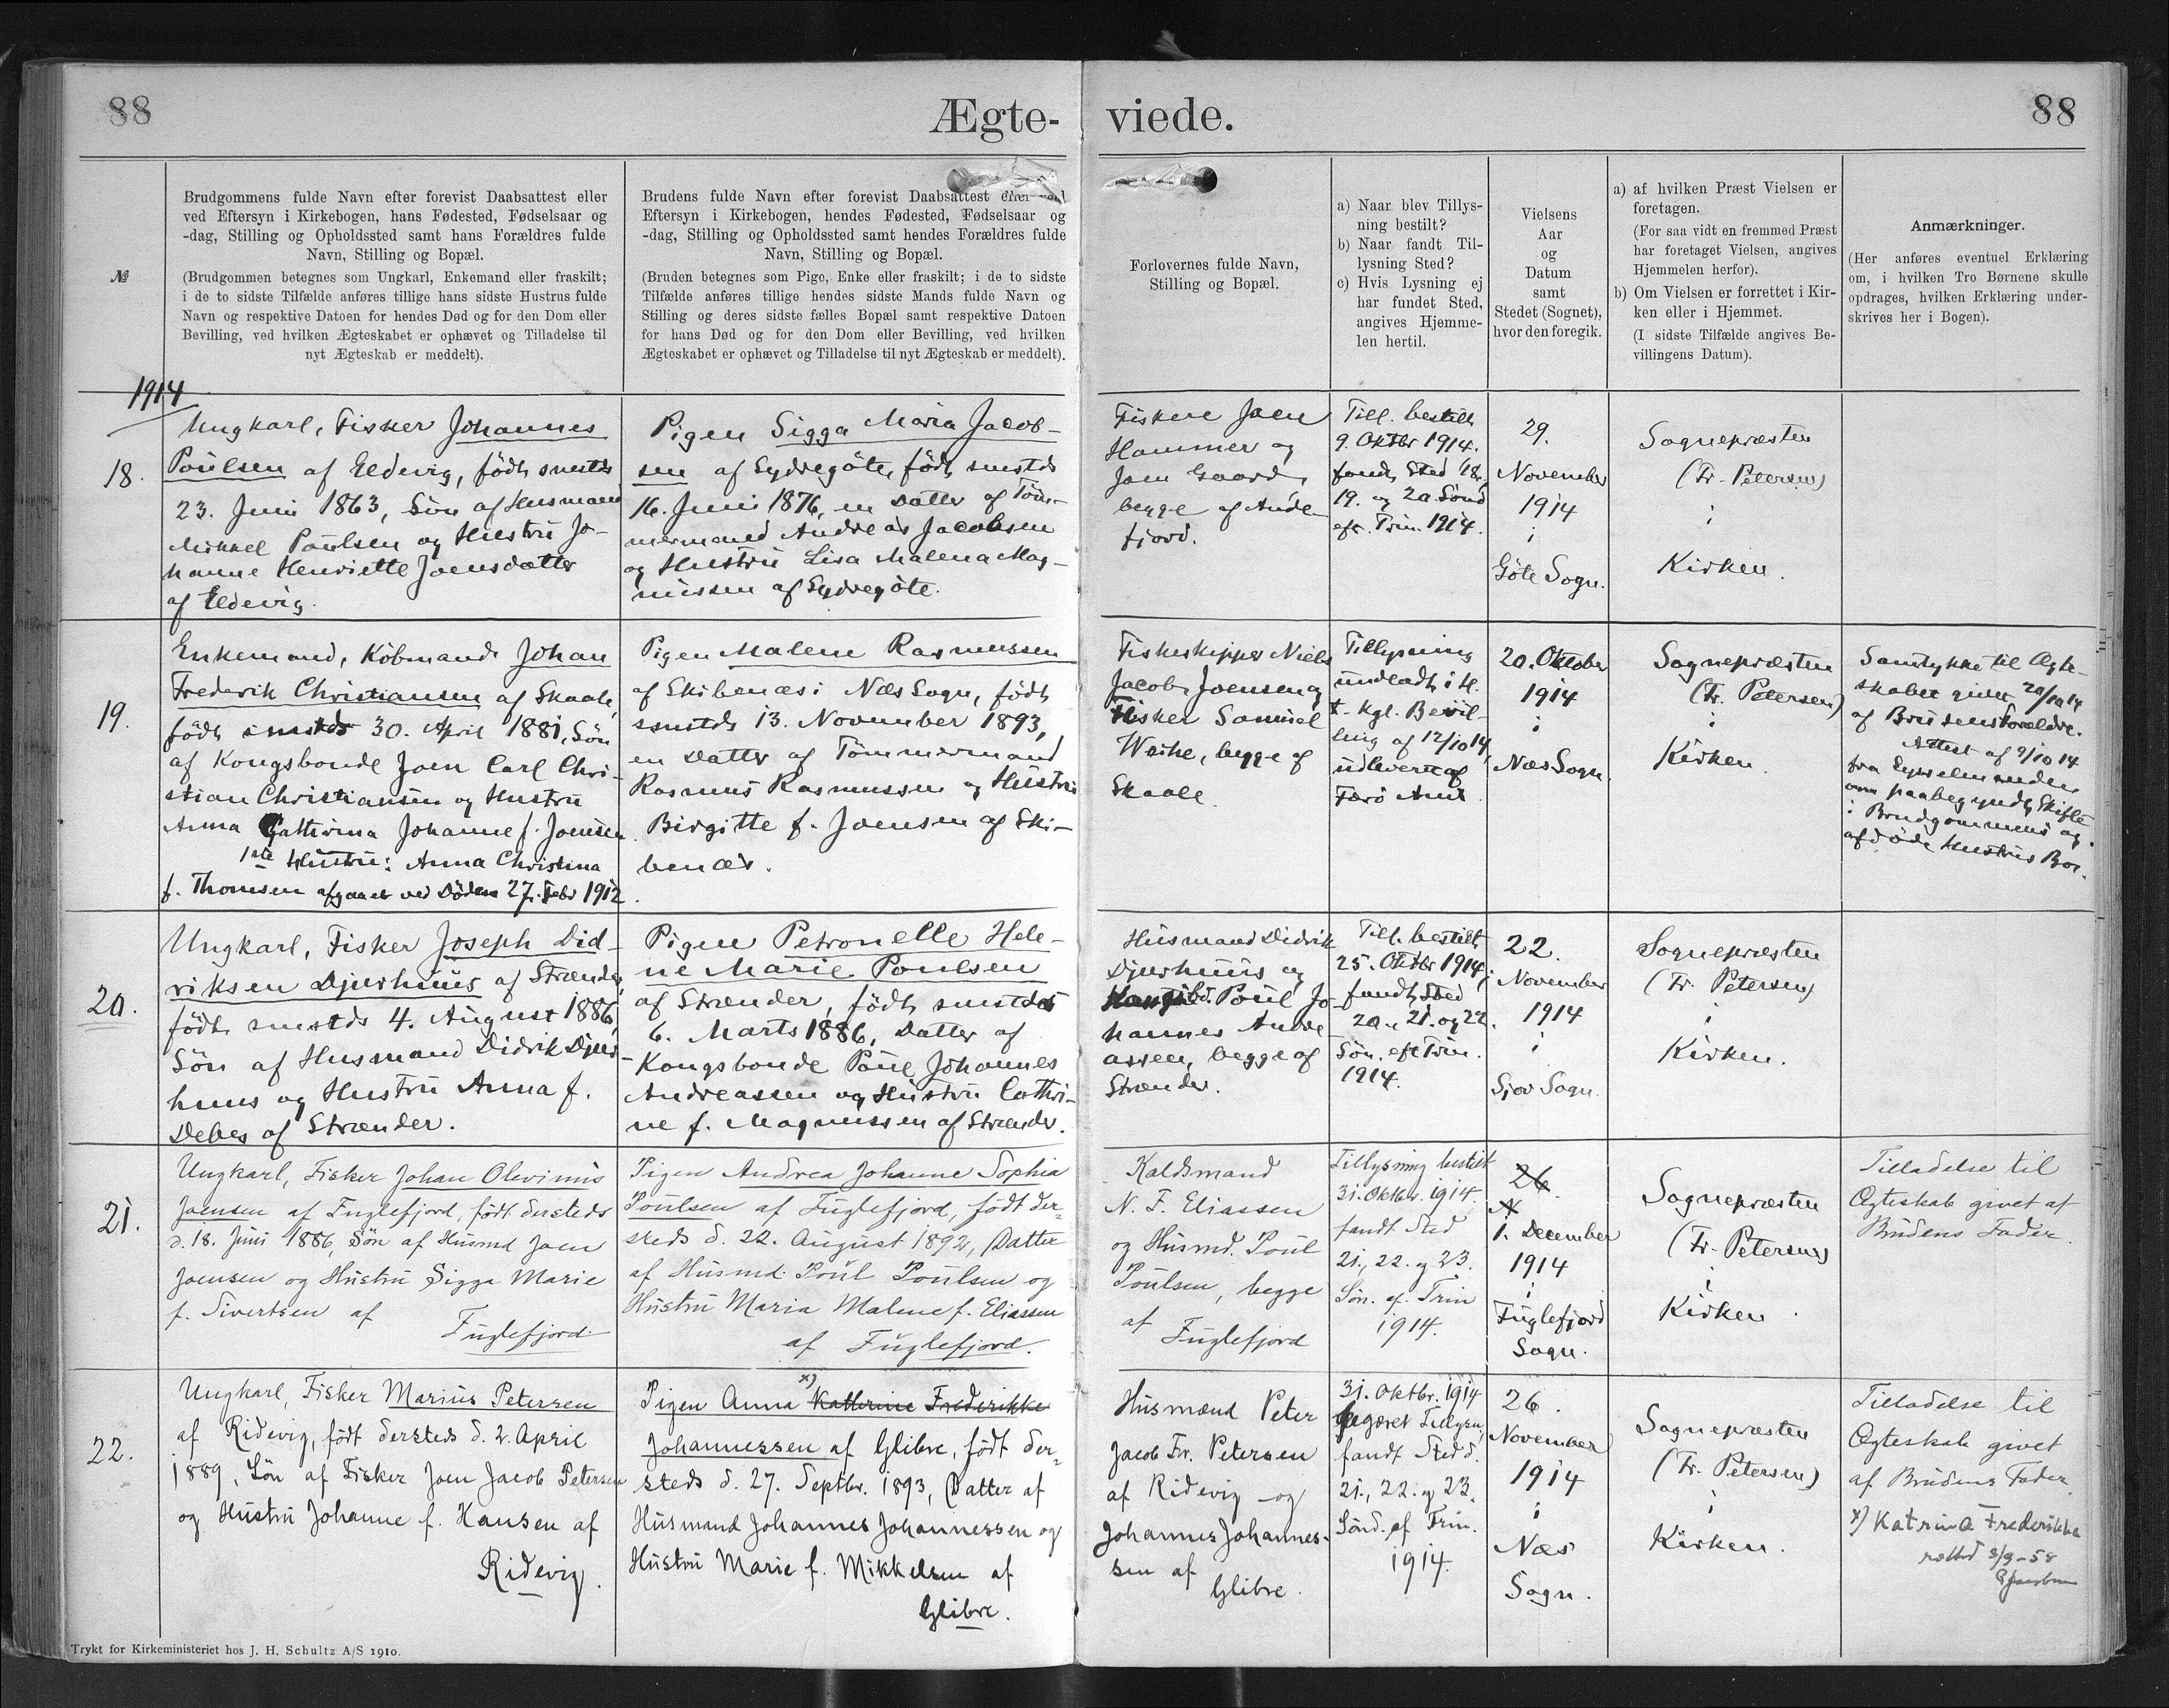 88
Ægte-
viede.
88
№
Brudgommens fulde Navn efter forevist Daabsattest eller
ved Eftersyn i Kirkebogen, hans Fødested, Fødselsaar og
-dag, Stilling og Opholdssted samt hans Forældres fulde
Navn, Stilling og Bopæl.
(Brudgommen betegnes som Ungkarl, Enkemand eller fraskilt;
i de to sidste Tilfælde anføres tillige hans sidste Hustrus fulde
Navn og respektive Datoen for hendes Død og for den Dom eller
Bevilling, ved hvilken Ægteskabet er ophævet og Tilladelse til
nyt Ægteskab er meddelt).
Brudens fulde Navn efter forevist Daabsattest eller ved
Eftersyn i Kirkebogen, hendes Fødested, Fødselsaar og
-dag, Stilling og Opholdssted samt hendes Forældres fulde
Navn, Stilling og Bopæl.
(Bruden betegnes som Pige, Enke eller fraskilt; i de to sidste
Tilfælde anføres tillige hendes sidste Mands fulde Navn og
Stilling og deres sidste fælles Bopæl samt respektive Datoen
for hans Død og for den Dom eller Bevilling, ved hvilken
Ægteskabet er ophævet og Tilladelse til nyt Ægteskab er meddelt).
Forlovernes fulde Navn,
Stilling og Bopæl.
a) Naar blev Tillys-
ning bestilt?
b) Naar fandt Til-
lysning Sted?
c) Hvis Lysning ej
har fundet Sted,
angives Hjemme-
len hertil.
Vielsens
Aar
og
Datum
samt
Stedet (Sognet),
hvor den foregik.
a) af hvilken Præst Vielsen er
foretagen.
(For saa vidt en fremmed Præst
har foretaget Vielsen, angives
Hjemmelen herfor).
b) Om Vielsen er forrettet i Kir-
ken eller i Hjemmet.
(I sidste Tilfælde angives Be-
villingens Datum).
Anmærkninger.
(Her anføres eventuel Erklæring
om, i hvilken Tro Børnene skulle
opdrages, hvilken Erklæring under-
skrives her i Bogen).
1914
18.
Ungkarl, Fisker Johannes
Poulsen af Eldevig, født smstds
23. Juni 1863, Søn af Husmand
Mikkel Poulsen og Hustru Jo-
hanne Henriette Joensdatter
af Eldevig.
Pigen Sigga Maria Jacob-
sen af Sydregøte, født smstds
16. Juni 1876, en Datter af Töm-
mermand Andreas Jacobsen
og Hustru Lisa Malena Mag-
nussen af Sydregøte.
Fiskere Joen
Hammer og
Joen Gaard,
begge af Ande-
fjord.
Till. bestilt
9. Oktbr 1914.
fandt Sted 18.,
19. og 20. Sönd
eft. Trin. 1914.
29.
November
1914
i
Göte Sogn.
Sognepræsten
(Fr. Petersen)
i
Kirken.
19.
Enkemand, Købmand Johan
Frederik Christiansen af Skaale,
født smstds 30. April 1881, Søn
af Kongsbonde Joen Carl Chri-
stian Christiansen og Hustru
Anna Cathrina Johanne f. Joensen
1ste Hustru: Anna Christina
f. Thomsen afgaaet ved Døden 27. Febr 1912.
Pigen Malene Rasmussen
af Skibenæs i Næs Sogn, født
smstds 13. November 1893,
en Datter af Tömmermand
Rasmus Rasmussen og Hustru
Birgitte f. Joensen af Ski-
benæs.
Fiskeskipper Niels
Jacob Joensen og
Fisker Samuel
Weihe, begge af
Skaale.
Tillysning
undladt i H.
t. kgl. Bevil-
ling af 12/10 14,
udleveret af
Færø Amt.
20. Oktober
1914
i
Næs Sogn.
Sognepræsten
(Fr. Petersen)
i
Kirken
Samtykke til Ægte-
skabet givet 20/10 14
af Brudens Forældre.
Attest af 9/10 14
fra Sysselmanden
om paabegyndt Skifte
i Brudgommens og
afdøde Hustrus Bo.
20.
Ungkarl, Fisker Joseph Did-
riksen Djurhuus af Strænder,
født smstds 4. August 1886,
Søn af Husmand Didrik Djur-
huus og Hustru Anna f.
Debes af Strænder.
Pigen Petronelle Hele-
ne Marie Poulsen
af Strænder, født smstds
6. Marts 1886, Datter af
Kongsbonde Poul Johannes
Andreassen og Hustru Cathri-
ne f. Magnussen af Strænder.
Husmand Didrik
Djurhuus og
Kongsbd. Poul Jo-
hannes Andre-
assen, begge af
Strænder.
Till. bestilt
25. Oktbr 1914,
fandt Sted
20., 21. og 22.
Søn. eft Trin.
1914.
22.
November
1914
i
Sjov Sogn.
Sognepræsten
(Fr. Petersen)
i
Kirken.
21.
Ungkarl, Fisker Johan Olevinus
Joensen af Fuglefjord, født dersteds
d. 18. Juni 1886, Søn af Husmd Joen
Joensen og Hustru Sigga Marie
f. Sivertsen af
Fuglefjord.
Pigen Andrea Johanne Sophia
Poulsen af Fuglefjord, født der-
steds d. 22. August 1892, Datter
af Husmd. Poul Poulsen og
Hustru Maria Malene f. Eliassen
af Fuglefjord.
N. F. Eliassen
og Husmd. Poul
Poulsen, begge
af
Fuglefjord
Tillysning bestilt
31. Oktbr. 1914,
fandt Sted
21., 22. og 23.
Søn. ef. Trin
1914.
26.
1. December
1914
i
Fuglefjord
Sogn.
Sognepræsten
(Fr. Petersen)
i
Kirken.
Tilladelse til
Ægteskab givet af
Brudens Fader.
22.
Ungkarl, Fisker Marius Petersen
af Ridevig, født dersteds d. 2. April
1889, Søn af Fisker Joen Jacob Petersen
og Hustru Johanne f. Hansen af
Ridevig.
x)
Pigen Anna Kathrine Frederikke
Johannessen af Glibre, født der-
steds d. 27. Septbr. 1893, Datter af
Husmand Johannes Johannessen og
Hustru Marie f. Mikkelsen af
Glibre.
Husmænd Peter
Jacob Fr. Petersen
af Ridevig og
Johannes Johannes-
sen af
Glibre.
31. Oktbr. 1914
begæret Tillysn,
fandt Sted d.
21., 22. og 23.
Sønd. ef Trin.
1914.
26.
November
1914
i
Næs
Sogn.
Sognepræsten
(Fr. Petersen)
i
Kirken.
Tilladelse til
Ægteskab givet
af Brudens Fader.
x) Katrina Frederikka
rettet 8/9-58
Trykt for Kirkeministeriet hos J. H. Schultz A/S 1910.